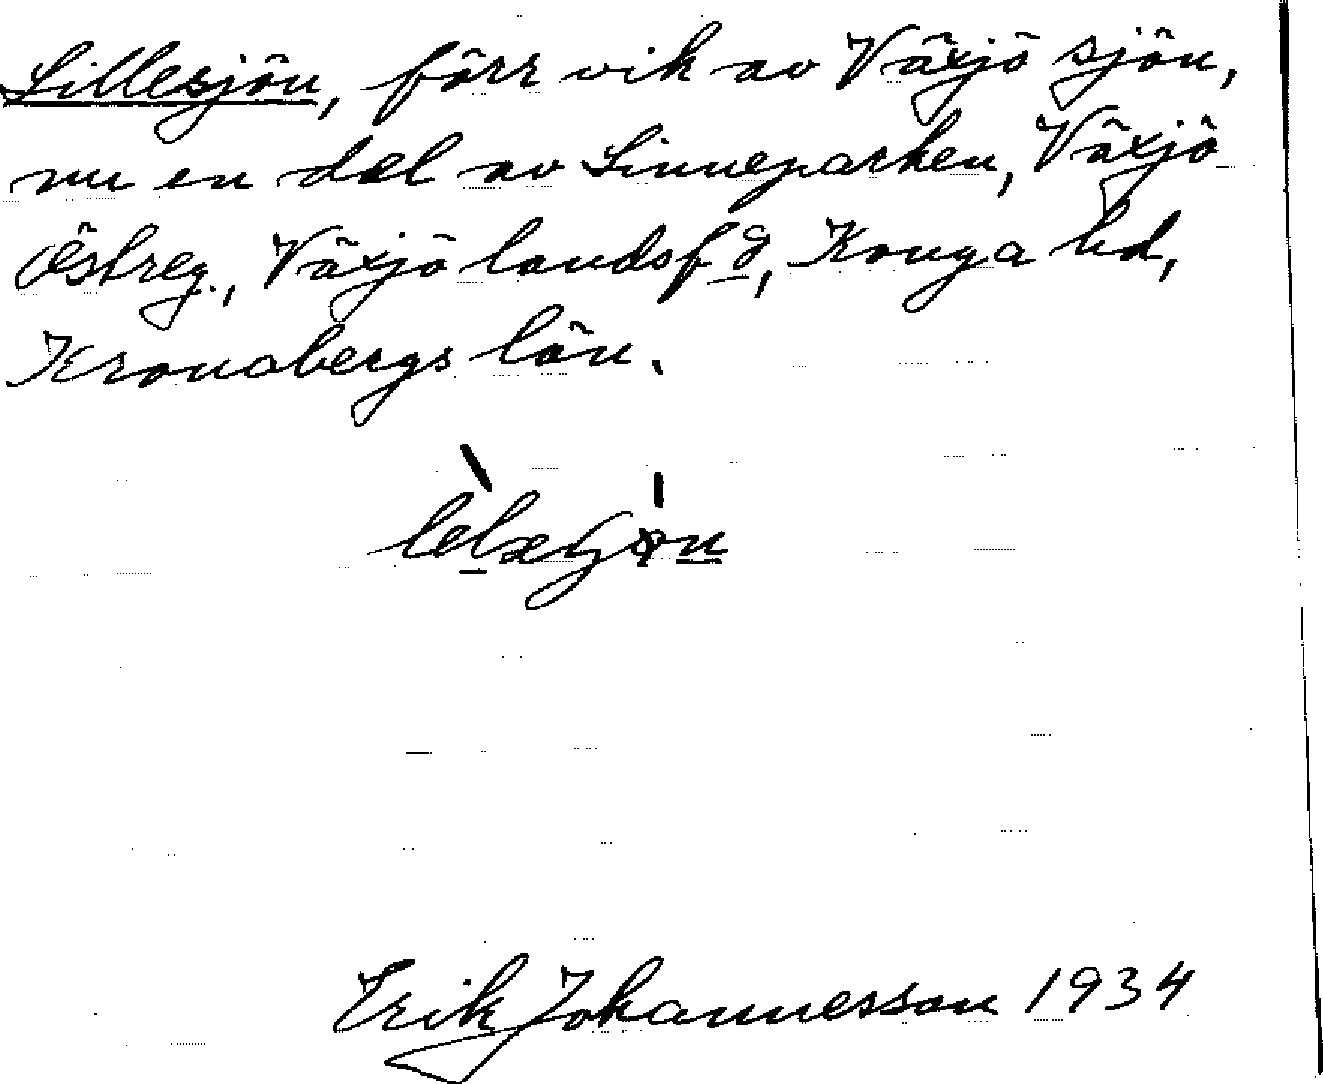 Lillesjön, förr vik av Växjö sjön,
nu en del av Linneparken, Växjö
östreg., Växjö landsfg, Konga hd,
Kronobergs län.
Erik Johannesson 1934